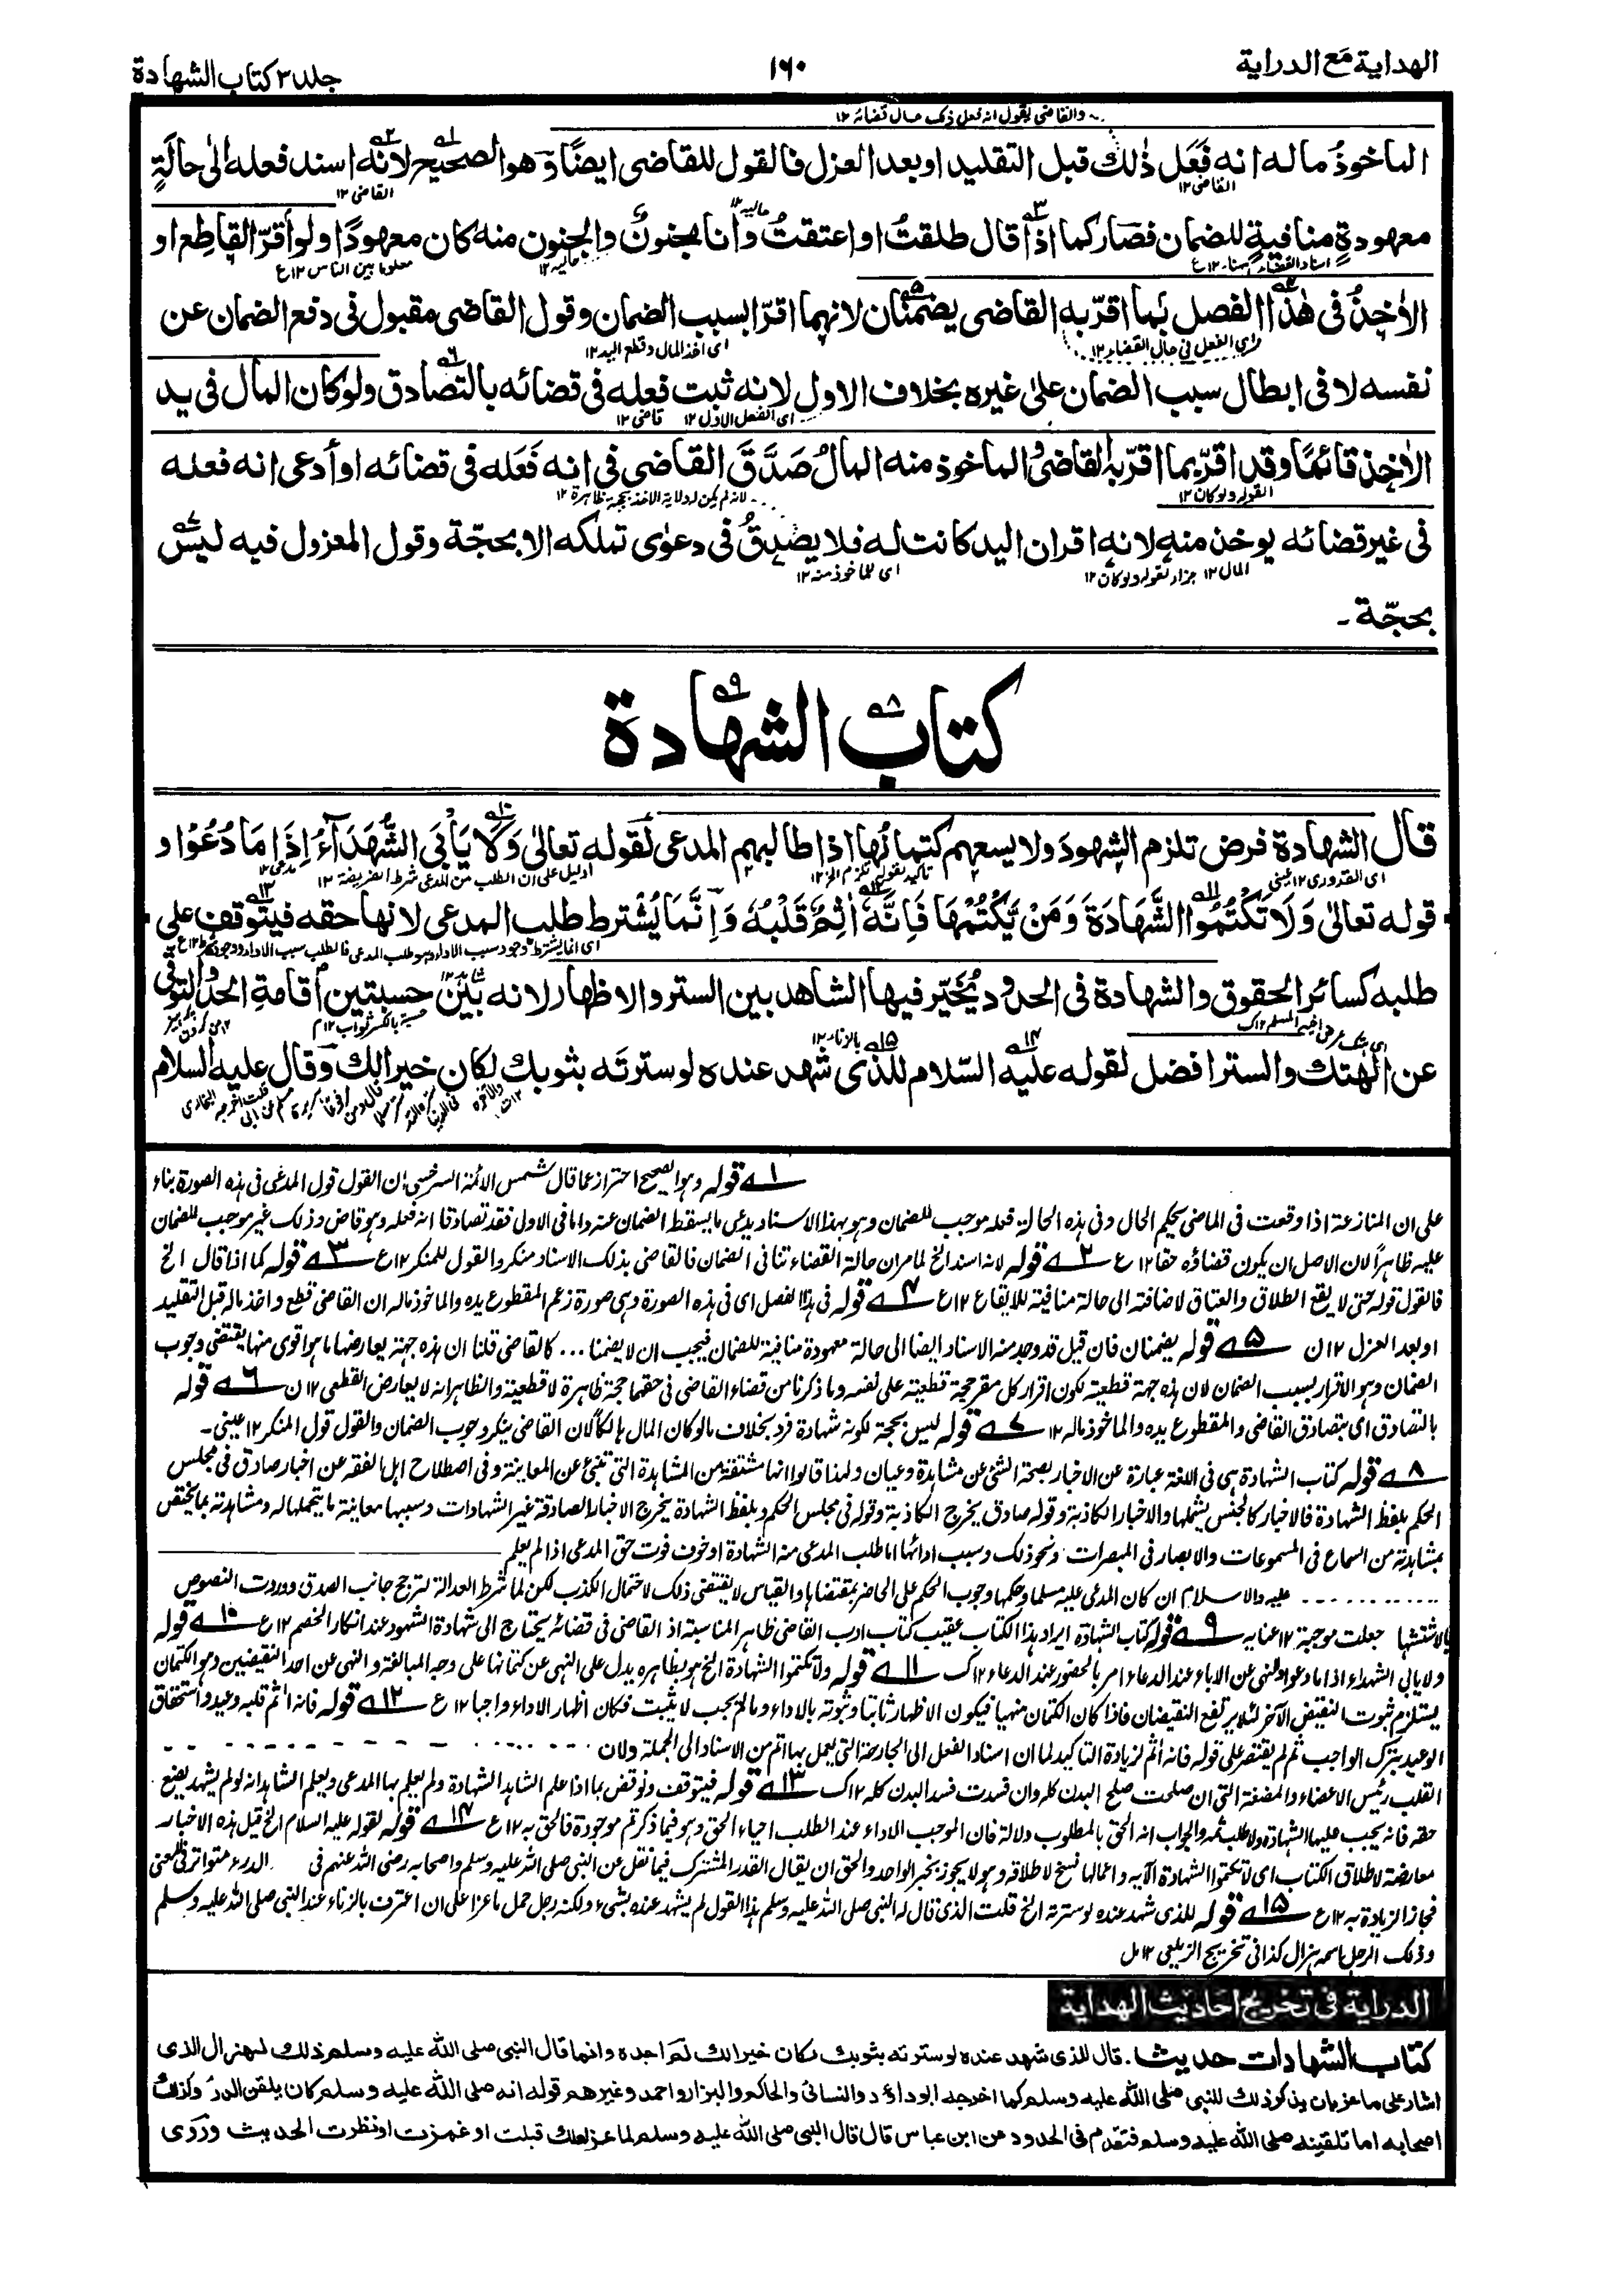 الهداية مع الدراية
١٦٠
جلد ٣ كتاب الشهادة
والقاضى يقول انه فعل ذلك حال قضائه ١٢
الماخوذ ماله انه فَعَل ذٰلك قبل التقليد اوبعد العزل فالقول للقاضى ايضًا وهو الصحيح لانه اسند فعله الى حالةٍ
القاضى ١٢
القاضى ١٢
معهودةٍ منافيةٍ للضمان فصار كما اذا قال طلقتُ او اعتقتُ وأنا مجنونٌ والجنون منه كان معهودًا ولو أقرّ القاطع او
الأٰخِذُ فى هٰذا الفصل بما اقرّ به القاضى يضمنان لانهما اقرّا بسبب الضمان وقول القاضى مقبول فى دفع الضمان عن
اى الفعل فى حال القضاء ١٢
اى اخذ المال وقطع اليد ١٢
نفسه لا فى ابطال سبب الضمان على غيره بخلاف الاول لانه ثبت فعله فى قضائه بالتصادق ولو كان المال فى يد
اى الفصل الاول ١٢
قاضى ١٢
الأٰخِذ قائمًا وقد اقرّ بما اقرّ به القاضىُ والماخوذ منه المالُ صَدَّقَ القاضى فى انه فَعَله فى قضائه او أدعى انه فعله
لانه لم يكن له ولاية الاخذ بحجة ظاهرة ١٢
فى غير قضائه يوخذ منه لانه اقر ان اليد كانت له فلا يصدقُ فى دعوٰى تملكه الا بحجّة وقول المعزول فيه ليس
المال ١٢
جزاء لقوله ولو كان ١٢
اى للماخوذ منه ١٢
بحجّة ـ
كتاب الشهادة
قال الشهادة فرض تلزم الشهودَ ولا يسعهم كتمانُها اذا طالبهم المدعى لقوله تعالىٰ وَلَا يَأْبَى الشُّهَدَآءُ إِذَا مَا دُعُوْا و
اى القدورى ١٢ عينى
تاكيد لقوله تلزم الخ ١٢
دليل على ان الطلب من المدعى شرط الفريضة ١٢
قوله تعالىٰ وَلَا تَكْتُمُوا الشَّهَادَةَ وَمَنْ يَكْتُمْهَا فَإِنَّهٗ اٰثِمٌ قَلْبُهٗ وَإِنَّمَا يُشْترط طلب المدعى لانها حقه فيتوقف على
طلبه كسائر الحقوق والشهادة فى الحدود يُخَيّر فيها الشاهد بين الستر والاظهار لانه بَيْنَ حسبتين أقامةِ الحد والتوقى
شاهد ١٢
عن الهتك والستر افضل لقوله عليه السّلام للذى شهد عنده لو سترتَه بثوبك لكان خيرا لك وقال عليه السلام
بالزناء ١٢
١ قوله وهو الصحيح احتراز عما قال شمس الائمة السرخسى ان القول قول المدعى فى هذه الصورة بناء
على ان المنازعة اذا وقعت فى الماضى يحكم الحال وفى هذه الحالة فعله موجب للضمان وهو بهذا الاسناد يدعى ما يسقط الضمان عنه واما فى الاول فقد تصادقا انه فعله وهو قاض وذلك غير موجب للضمان
عليه ظاهرًا لان الاصل ان يكون قضاؤه حقا ١٢ ع ٢ قوله لانه اسند الخ لما مر ان حالة القضاء تنافى الضمان فالقاضى بذلك الاسناد منكر والقول للمنكر ١٢ ع ٣ قوله كما اذا قال الخ
فالقول قوله حتى لا يقع الطلاق والعتاق لاضافته الى حالة منافية للايقاع ١٢ ع ٤ قوله فى هذا الفصل اى فى هذه الصورة وهى صورة زعم المقطوع يده والماخوذ ماله ان القاضى قطع واخذ ماله قبل التقليد
او بعد العزل ١٢ ن ٥ قوله يضمنان فان قيل قد وجد منه الاسناد ايضا الى حالة معهودة منافية للضمان فيجب ان لا يضمنا ... كالقاضى قلنا ان هذه جهة يعارضها ما هو اقوى منها يقتضى وجوب
الضمان وهو الاقرار بسبب الضمان لان هذه جهة قطعية لكون اقرار كل مقر حجة قطعية على نفسه وما ذكرنا من قضاء القاضى فى حقهما حجة ظاهرة لا قطعية والظاهر انه لا يعارض القطعى ١٢ ن ٦ قوله
بالتصادق اى بتصادق القاضى والمقطوع يده والماخوذ ماله ١٢ ٧ قوله ليس بحجة لكونه شهادة فرد بخلاف ما لو كان المال هالكًا لان القاضى ينكر وجوب الضمان والقول قول المنكر ١٢ عينى ـ
٨ قوله كتاب الشهادة هى فى اللغة عبارة عن الاخبار بصحة الشئ عن مشاهدة وعيان ولهذا قالوا انها مشتقة من المشاهدة التى تنبئ عن المعاينة وفى اصطلاح اهل الفقه عن اخبار صادق فى مجلس
الحكم بلفظ الشهادة فالاخبار كالجنس يشملها والاخبار الكاذبة وقوله صادق يخرج الكاذبة وقوله فى مجلس الحكم وبلفظ الشهادة يخرج الاخبار الصادقة غير الشهادات وسببها معاينة ما يتحملها له ومشاهدته بما يختص
بمشاهدته من السماع فى المسموعات والابصار فى المبصرات ونحو ذلك وسبب ادائها اما طلب المدعى منه الشهادة او خوف فوت حق المدعى اذا لم يعلم
عليه والاسلام ان كان المدعى عليه مسلما وحكمها وجوب الحكم على الحاضر بمقتضاها والقياس لا يقتضى ذلك لاحتمال الكذب لكن لما شرط العدالة لترجح جانب الصدق ووردت النصوص
جعلت موجبة ١٢ عنايه ٩ قوله كتاب الشهادة ايراد هذا الكتاب عقيب كتاب ادب القاضى ظاهر المناسبة اذ القاضى فى قضائه يحتاج الى شهادة الشهود عند انكار الخصم ١٢ ع ١٠ قوله
ولا يابى الشهداء اذا ما دعوا والنهى عن الاباء عند الدعاء امر بالحضور عند الدعاء ١٢ ك ١١ قوله ولا تكتموا الشهادة الخ هو بظاهره يدل على النهى عن كتمانها على وجه المبالغة والنهى عن احد النقيضين وهو الكتمان
يستلزم ثبوت النقيض الآخر لئلا يرتفع النقيضان فاذا كان الكتمان منهيا فيكون الاظهار ثابتا وثبوته بالاداء وما لم يجب لا يثبت فكان اظهار الاداء واجبا ١٢ ع ١٢ قوله فانه آثم قلبه وعيد واستحقاق
الوعيد بترك الواجب ثم لم يقتصر على قوله فانه آثم لزيادة التاكيد لما ان اسناد الفعل الى الجارحة التى يعمل بها اتم من الاسناد الى الجملة ولان
القلب رئيس الاعضاء والمضغة التى ان صلحت صلح البدن كله وان فسدت فسد البدن كله ١٢ ك ١٣ قوله فيتوقف ونوقض بما اذا علم الشاهد الشهادة ولم يعلم بها المدعى ويعلم الشاهد انه لو لم يشهد يضيع
حقه فانه يجب عليه الشهادة ولا طلب ثمه والجواب انه الحق بالمطلوب دلالة فان الموجب الاداء عند الطلب احياء الحق وهو فيما ذكرتم موجودة فالحق به ١٢ ع ١٤ قوله لقوله عليه السلام الخ قيل هذه الاخبار
معارضة لاطلاق الكتاب اى لا تكتموا الشهادة الآية واعمالها نسخ لاطلاقه وهو لا يجوز بخبر الواحد والحق ان يقال القدر المشترك فيما نقل عن النبى صلى الله عليه وسلم واصحابه رضى الله عنهم فى الدرء متواتر فى المعنى
فجاز الزيادة به ١٢ ع ١٥ قوله للذى شهد عنده لو سترته الخ قلت الذى قال له النبى صلى الله عليه وسلم هذا القول لم يشهد عنده بشىء ولكنه رجل حمل ماعزا على ان اعترف بالزناء عند النبى صلى الله عليه وسلم
وذلك الرجل اسمه هزال كذا فى تخريج الزيلعى ١٢ مل
الدراية فى تخريج احاديث الهداية
كتاب الشهادات حديث. قال للذى شهد عنده لو سترته بثوبك لكان خيرا لك لم اجده وانما قال النبى صلى الله عليه وسلم ذلك لهزال الذى
اشار على ماعز بان يذكر ذلك للنبى صلى الله عليه وسلم كما اخرجه ابو داؤد والنسائى والحاكم والبزار واحمد وغيرهم قوله انه صلى الله عليه وسلم كان يلقن الدرء وكذلك
اصحابه اما تلقينه صلى الله عليه وسلم فتقدم فى الحدود من ابن عباس قال قال النبى صلى الله عليه وسلم لماعز لعلك قبلت او غمزت او نظرت الحديث وروى